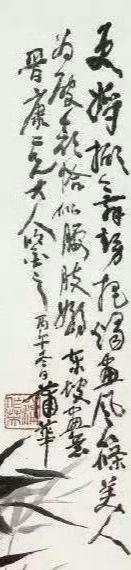 更將掀舞勢把燭畫風篠美人
為破顏恰似腰肢嫋東坡畫
晉康仁兄大人 丙午冬日蒲華